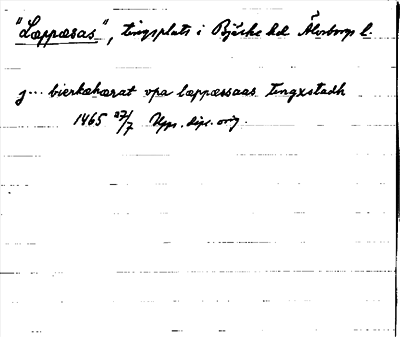 "Læppæsas", tingsplats i Bjärke hd Älvsborgs l.
j... bierkæhærat vpa læppæssaas tingxstadh
1465 27/7 Upps. dipl. orig.